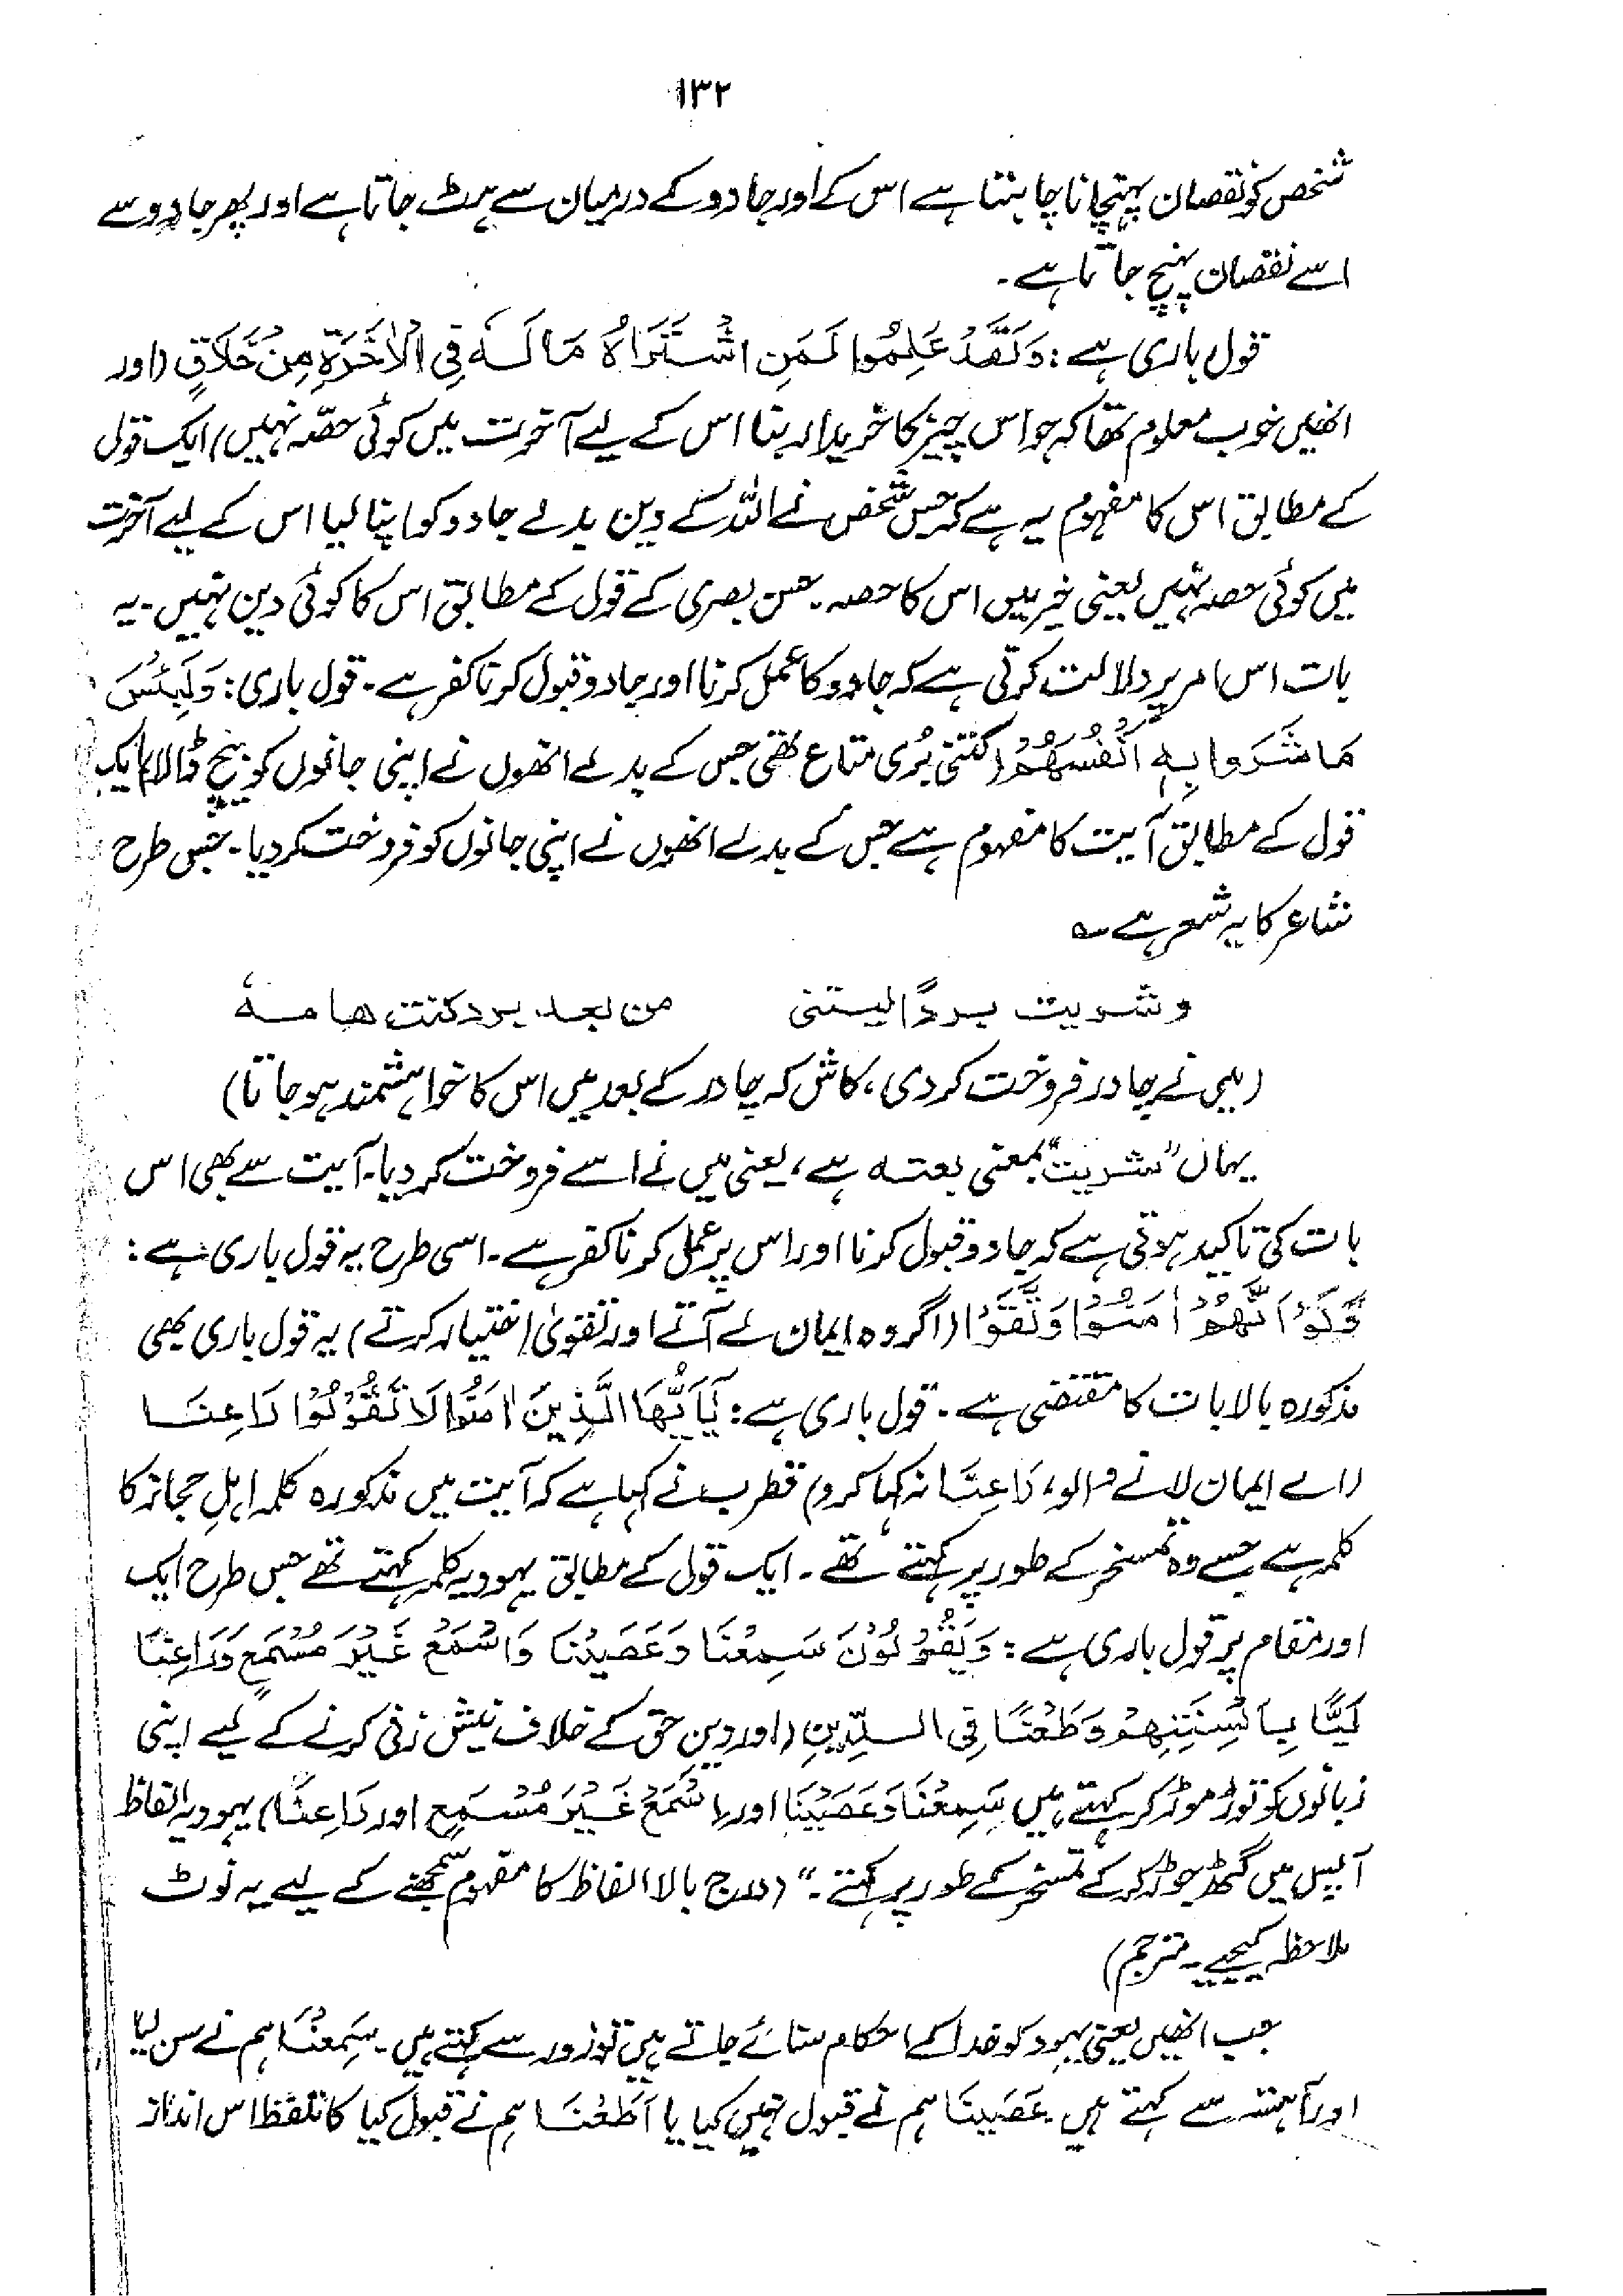 ۱۳۲
شخص کو نقصان پہنچانا چاہتا ہے اس کے اور جادو کے درمیان سے ہٹ جاتا ہے اور پھر جادو سے
اسے نقصان پہنچ جاتا ہے۔
قول باری ہے: وَلَقَدْ عَلِمُوا لَمَنِ اشْتَرَاهُ مَا لَهُ فِی الْاٰخِرَةِ مِنْ خَلَاقٍ (اور
انھیں خوب معلوم تھا کہ جو اس چیز کا خریدار بنا اس کے لیے آخرت میں کوئی حصّہ نہیں) ایک قول
کے مطابق اس کا مفہوم یہ ہے کہ جس شخص نے اللہ کے دین بدلے جادو کو اپنا لیا اس کے لیے آخرت
میں کوئی حصہ نہیں یعنی خیر میں اس کا حصہ۔ حسن بصری کے قول کے مطابق اس کا کوئی دین نہیں۔ یہ
بات اس امر پر دلالت کرتی ہے کہ جادو کا عمل کرنا اور جادو قبول کرنا کفر ہے۔ قول باری: وَلَبِئْسَ
مَا شَرَوا بِهٖ اَنْفُسَهُمْ (کتنی بُری متاع تھی جس کے بدلے انھوں نے اپنی جانوں کو بیچ ڈالا) ایک
قول کے مطابق آیت کا مفہوم ہے جس کے بدلے انھوں نے اپنی جانوں کو فروخت کر دیا۔ جس طرح
شاعر کا یہ شعر ہے؎
وشریت بردًا لیتنی من بعد برد کنت هامهٗ
(میں نے چادر فروخت کر دی، کاش کہ چادر کے بعد میں اس کا خواہشمند ہو جاتا)
یہاں "شریت" بمعنی بعته ہے، یعنی میں نے اسے فروخت کر دیا۔ آیت سے بھی اس
بات کی تاکید ہوتی ہے کہ جادو قبول کرنا اور اس پر عمل کرنا کفر ہے۔ اسی طرح یہ قول باری ہے:
وَلَوْ اَنَّهُمْ اٰمَنُوْا وَتَّقَوْا (اگر وہ ایمان لے آتے اور تقویٰ اختیار کرتے) یہ قول باری بھی
مذکورہ بالا بات کا مقتضی ہے۔ قول باری ہے: یٰٓاَیُّهَا الَّذِیْنَ اٰمَنُوا لَا تَقُوْلُوْا رَاعِنَا
(اے ایمان لانے والو، رَاعِنَا نہ کہا کرو) قطرب نے کہا ہے کہ آیت میں مذکورہ کلمہ اہلِ حجاز کا
کلمہ ہے جسے وہ تمسخر کے طور پر کہتے تھے۔ ایک قول کے مطابق یہود یہ کلمہ کہتے تھے جس طرح ایک
اور مقام پر قول باری ہے: وَیَقُوْلُوْنَ سَمِعْنَا وَعَصَیْنَا وَاسْمَعْ غَیْرَ مُسْمَعٍ وَرَاعِنَا
لَیًّا بِاَلْسِنَتِهِمْ وَطَعْنًا فِی الدِّیْنِ (اور دین حق کے خلاف نیش زنی کرنے کے لیے اپنی
زبانوں کو توڑ موڑ کر کہتے ہیں سَمِعْنَا وَعَصَیْنَا اور اسْمَعْ غَیْرَ مُسْمَعٍ اور رَاعِنَا) یہود یہ الفاظ
آپس میں گٹھ جوڑ کر کے تمسخر کے طور پر کہتے۔" (درج بالا الفاظ کا مفہوم سمجھنے کے لیے یہ نوٹ
ملاحظہ کیجیے۔ مترجم)
جب انھیں یعنی یہود کو خدا کے احکام سنائے جاتے ہیں تو زور سے کہتے ہیں۔ سَمِعْنَا ہم نے سن لیا
اور آہستہ سے کہتے ہیں۔ عَصَینَا ہم نے قبول نہیں کیا یا اَطَعْنَا ہم نے قبول کیا کا تلفظ اس انداز